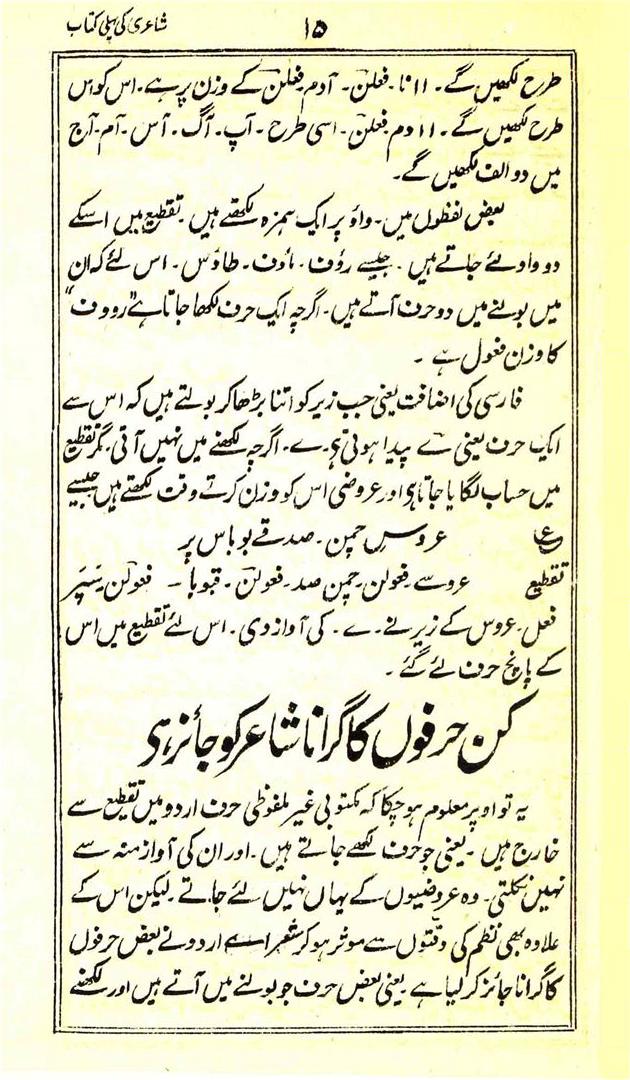 ۱۵
شاعری کی پہلی کتاب
طرح لکھیں گے۔ ۱۱ نا۔ فعلن۔ آدم فعلن کے وزن پر ہے۔ اس کو اس
طرح لکھیں گے۔ ۱۱ دم فعلن۔ اسی طرح۔ آپ۔ آگ۔ آس۔ آم۔ آج
میں دو الف لکھیں گے۔
بعض لفظوں میں۔ واؤ پر ایک ہمزہ لکھتے ہیں۔ تقطیع میں اسکے
دو واو لئے جاتے ہیں۔ جیسے رؤف۔ ہاؤن۔ طاؤس۔ اس لئے کہ ان
میں بولنے میں دو حرف آتے ہیں۔ اگرچہ ایک حرف لکھا جاتا ہے "رووف"
کا وزن فعول ہے۔
فارسی کی اضافت یعنی جب زیر کو اتنا بڑھا کر بولتے ہیں کہ اس سے
ایک حرف یعنی ے پیدا ہوتی ہی۔ ے۔ اگرچہ لکھنے میں نہیں آتی مگر تقطیع
میں حساب لگایا جاتا ہی اور عروضی اس کو وزن کرتے وقت لکھتے ہیں جیسے
ع عروسِ چمن۔ صدقے بوباس پر
تقطیع عروسے۔ فعولن۔ چمن صد۔ فعولن۔ قبوبا۔ فعولن سپر
فعل۔ عروس کے زیر نے۔ ے۔ کی آواز دی۔ اس لئے تقطیع میں اس
کے پانچ حرف لئے گئے۔
کن حرفوں کا گرانا شاعر کو جائز ہی
یہ تو اوپر معلوم ہو چکا کہ مکتوبی غیر ملفوظی حرف اردو میں تقطیع سے
خارج ہیں۔ یعنی جو حرف لکھے جاتے ہیں۔ اور ان کی آواز منہ سے
نہیں نکلتی۔ وہ عروضیوں کے یہاں نہیں لئے جاتے۔ لیکن اس کے
علاوہ بھی نظم کی دقتوں سے موثر ہو کر شعراے اردو نے بعض حرفوں
کا گرانا جائز کر لیا ہے۔ یعنی بعض حرف جو بولنے میں آتے ہیں اور لکھنے